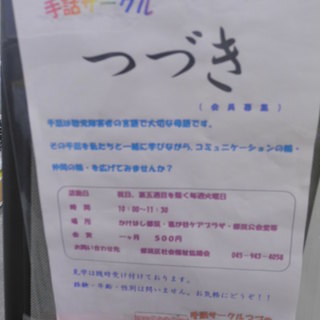 手話サークル
つづき
（会員募集）
手話は聴覚障害者の言語で大切な母語です。
その手話を私たちと一緒に学びながら、コミュニケーションの輪・
仲間の輪・を広げてみませんか？
活動日 祝日、第五週目を除く毎週火曜日
時間 10：00～11：30
場所 かけはし都筑・葛が谷ケアプラザ・都筑公会堂等
会費 一ヶ月 500円
お問い合わせ先 都筑区社会福祉協議会 045-943-4058
見学は随時受け付けております。
経験・年齢・性別は問いません。お気軽にどうぞ！！
手話サークルつづき